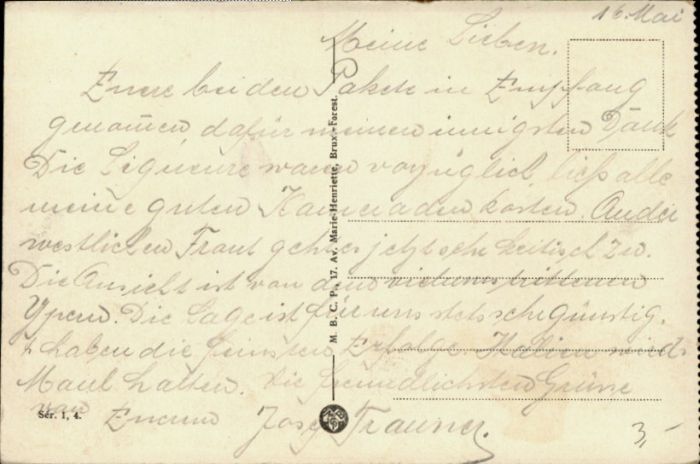 16. Mai
Meine Lieben.
Euere beiden Pakete in Empfang
genom̅en, dafür meinen innigsten Dank
Die Liqueure waren vorzüglich ließ alle
meine guten Kameraden kosten. An der
westlichen Front geht es jetzt sehr kritisch zu.
Die Ansicht ist von dem vielumstrittenen
Ypern. Die Lage ist für uns stets sehr günstig.
haben die feinsten Erfolge
Maul halten. Die freundlichsten Grüsse
von Euerem Josef Trauner.
M. B. C. P., 17, Av. Marie-Henriette, Brux.-Forest.
Sér. 1, 4.
3,-